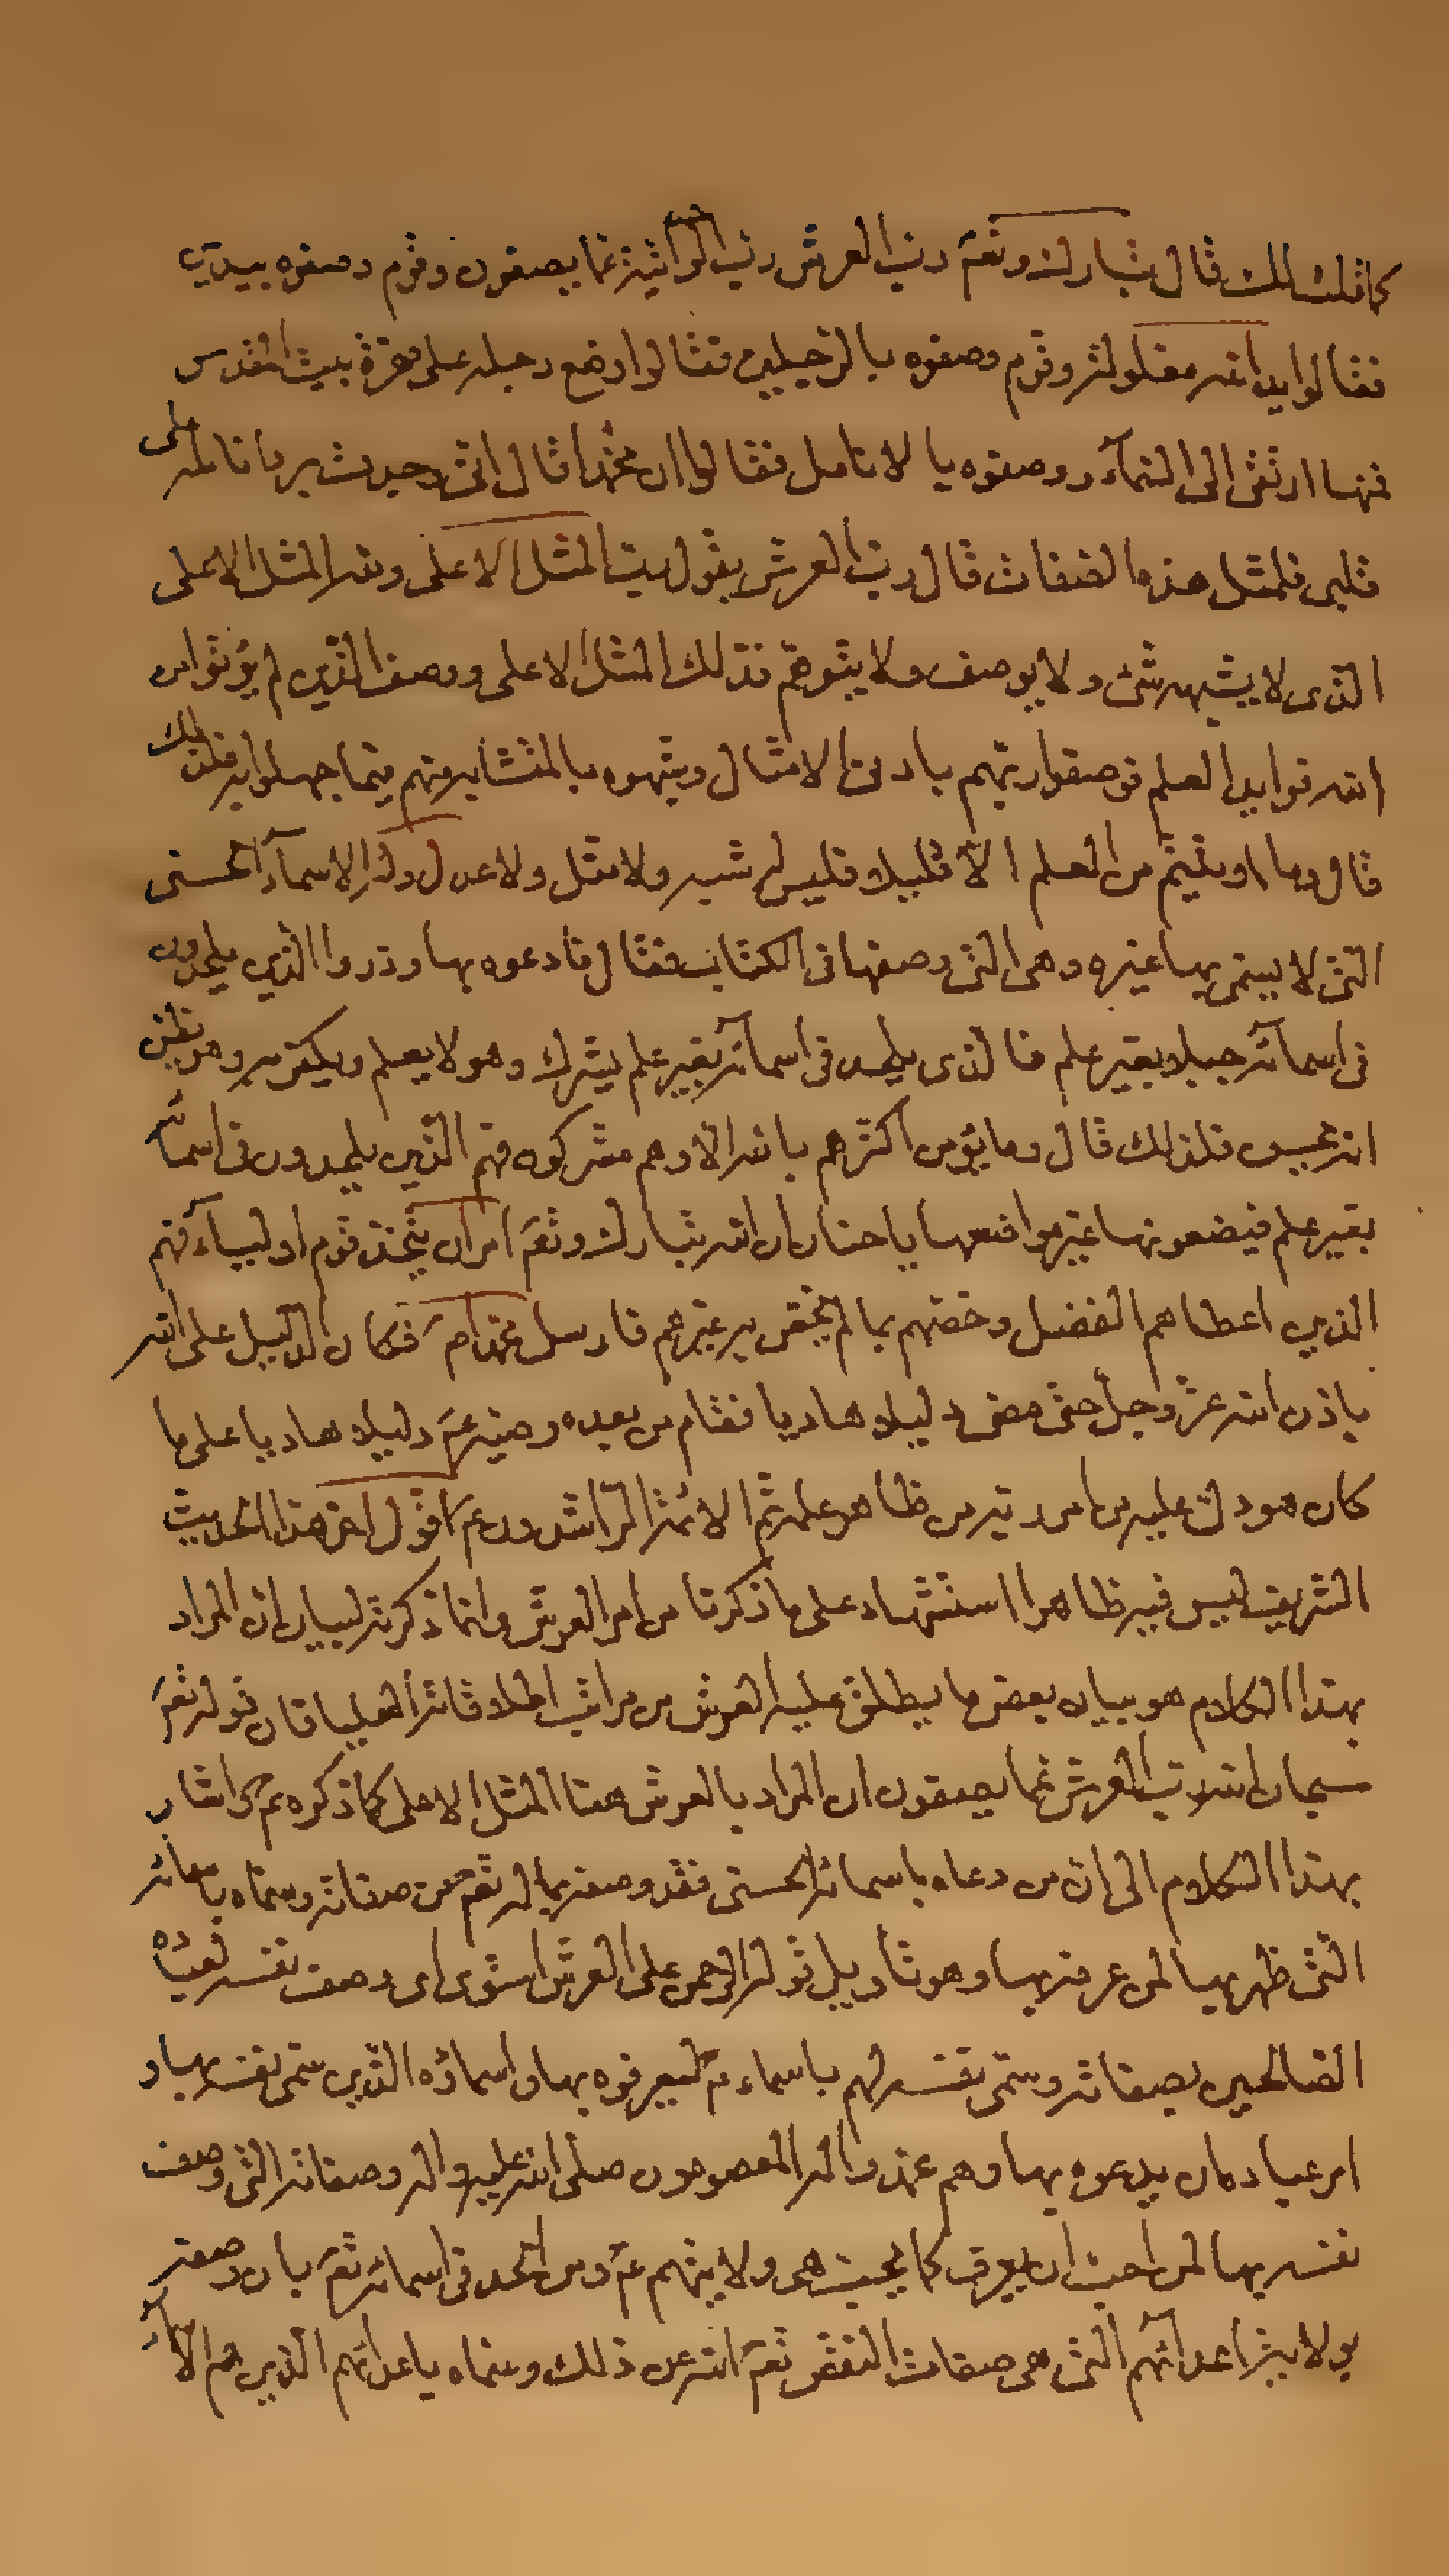 كما قلت لك قال تبارك وتعم رب العرش رب الوحدانية عما يصفون وقوم وصفوه بيدين
فقالوا يد الله مغلولة وقوم وصفوه بالرجلين فقالوا وضع رجله على صخرة بيت المقدس
فمنها ارتقى الى السماء ووصفوه بالانامل فقالوا ان محمدا قال انى وجدت برد انامله على
قلبى فلمثل هذه الصفات قال رب العرش يقول رب المثل الاعلى ولله المثل الاعلى
الذى لا يشبهه شئ ولا يوصف ولا يتوهم فذلك المثل الاعلى ووصف الذين لم يؤتوا من
الله فوايد العلم فوصفوا ربهم بادنى الامثال وشبهوه بالمتشابه منهم فيما جهلوا به فلذلك
قال وما اوتيتم من العلم الا قليلا فليس له شبه ولا مثل ولا عدل وله الاسماء الحسنى
التى لا يسمى بها غيره وهى التى وصفها فى الكتاب فقال فادعوه بها وذروا الذين يلحدون
فى اسمائه جهلا بغير علم فالذى يلحد فى اسمائه بغير علم يشرك وهو لا يعلم ويكفر به وهو يظن
انه يحسن فلذلك قال وما يؤمن اكثرهم بالله الا وهم مشركون فهم الذين يلحدون فى اسمائه
بغير علم فيضعونها غير مواضعها يا حنان ان الله تبارك وتعم امر ان يتخذ قوم اولياء فهم
الذين اعطاهم الفضل وخصهم بما لم يخص به غيرهم فارسل محمدا ص فكان الدليل على الله
باذن الله عز وجل حتى مضى دليلا هاديا فقام من بعده وصيه عم دليلا هاديا على ما
كان هو دل عليه من امر ربه من ظاهر علمه ثم الائمة الراشدون عم اقول اخر هذا الحديث
الشريف ليس فيه ظاهرا استشهاد على ما ذكرنا من امر العرش وانما ذكرته لبيان ان المراد
بهذا الكلام هو بيان بعض ما يطلق عليه العرش من مراتب اطلاقاته العليا فان قوله تعم
سبحان الله رب العرش عما يصفون ان المراد بالعرش هنا المثل الاعلى كما ذكره عم واشار
بهذا الكلام الى ان من دعاه باسمائه الحسنى فقد وصفه بما له تعم من صفاته وسماه باسمائه
التى ظهر بها لمن عرفه بها وهو تأويل قوله الرحمن على العرش استوى اى وصف نفسه لعباده
الصالحين بصفاته وسمى نفسه لهم باسمائه ليعرفوه بها واسماؤه الذين سمى نفسه بها و
امر عباده ان يدعوه بها وهم محمد واله المعصومون صلى الله عليه واله وصفاته التى وصف
نفسه بها لمن احب ان يعرف كما يحب هى ولايتهم عم ومن الحد فى اسمائه تعم بان وصفه
بولاية اعدائهم التى هى صفات النقص تعم الله عن ذلك وسماه باعدائهم الذين هم الاسماء